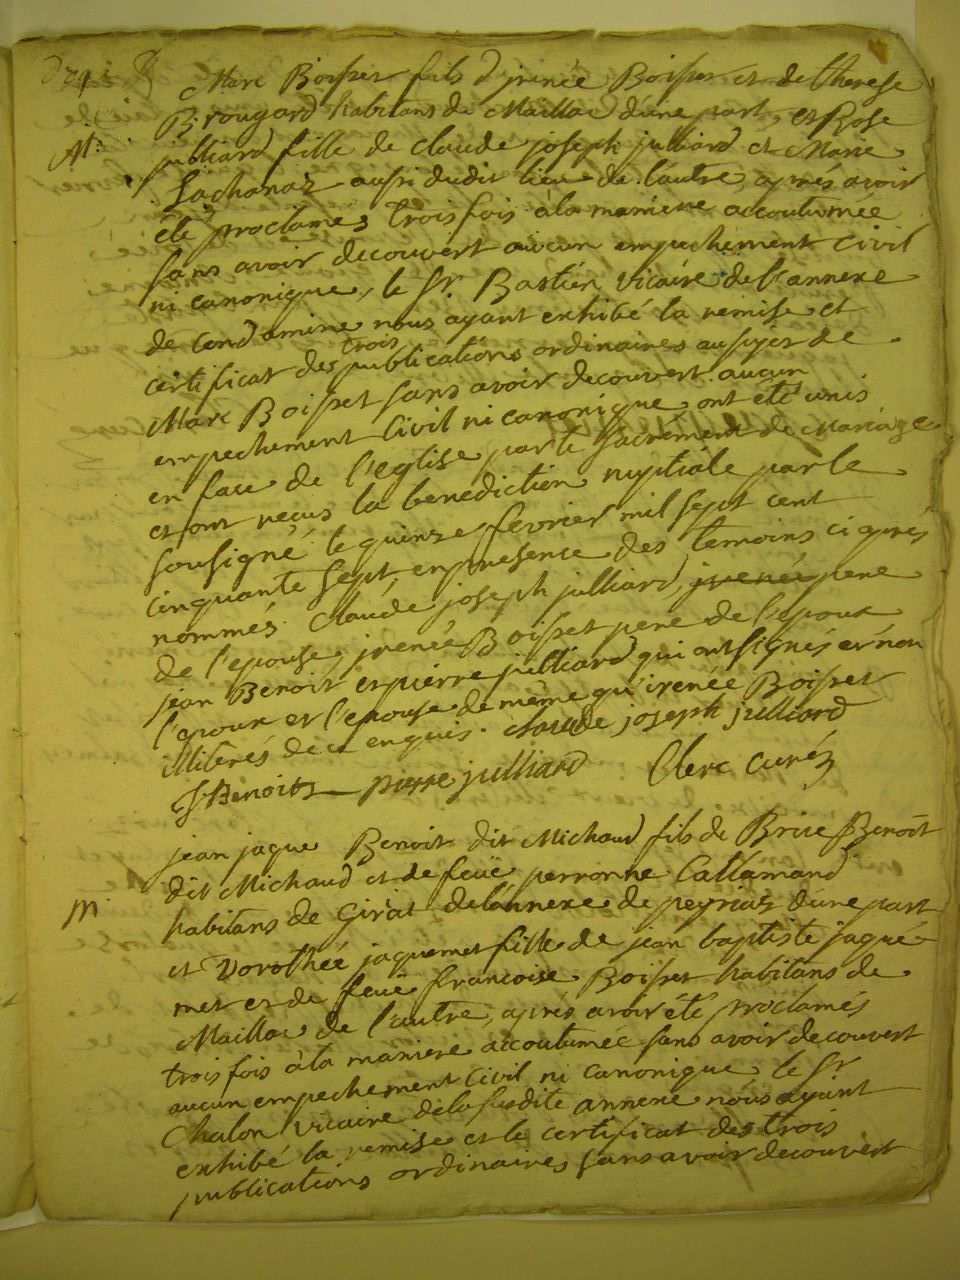 Marc Boisset fils d'jrenée Boisset et de therese
Brougard habitans de Maillac d'une part, et Rose
M.
julliard fille de claude joseph julliard et Marie
Lachanaz aussi dudit lieu de l'autre, aprés avoir
été proclamés trois fois à la maniere accoutumée
sans avoir decouvert aucun empechement civil
ni canonique, le Sr. Bastien vicaire de l'annexe
de Condamine nous ayant exhibé la remise et
certificat des trois publications ordinaires au sujet de
Marc Boisset sans avoir decouvert aucun
empechement Civil ni canonique ont été unis
en face de l'eglise par le sacrement de Mariage
et ont reçus la benediction nuptiale par le
sousigné le quinze fevrier mil sept cent
cinquante sept, en presence des temoins ci aprés
nommés. Claude joseph julliard, jrenée pere
de l'epouse, jrenée Boisset pere de l'epoux
jean Benoit et pierre julliard qui ont signés et non
l'epoux et l'epouse de même qu'irenée Boisset
illiterés de ce enquis. claude joseph julliard
J Benoit pierre julliard Clerc curéz
jean jaque Benoit dit Michaud fils de Brice Benoit
dit Michaud et de feüe perronne Callamand
m.
habitans de Girat de l'annexe de peyriat d'une part
et Dorothée jaquemet fille de jean baptiste jaque-
met et de feüe francoise Boisset habitans de
Maillac de l'autre, aprés avoir été proclamés
trois fois à la maniere accoutumée sans avoir decouvert
aucun empechement civil ni canonique le Sr
Chalon vicaire de la susdite annexe nous ayant
exhibé la remise et le certificat des trois
publications ordinaires sans avoir decouvert